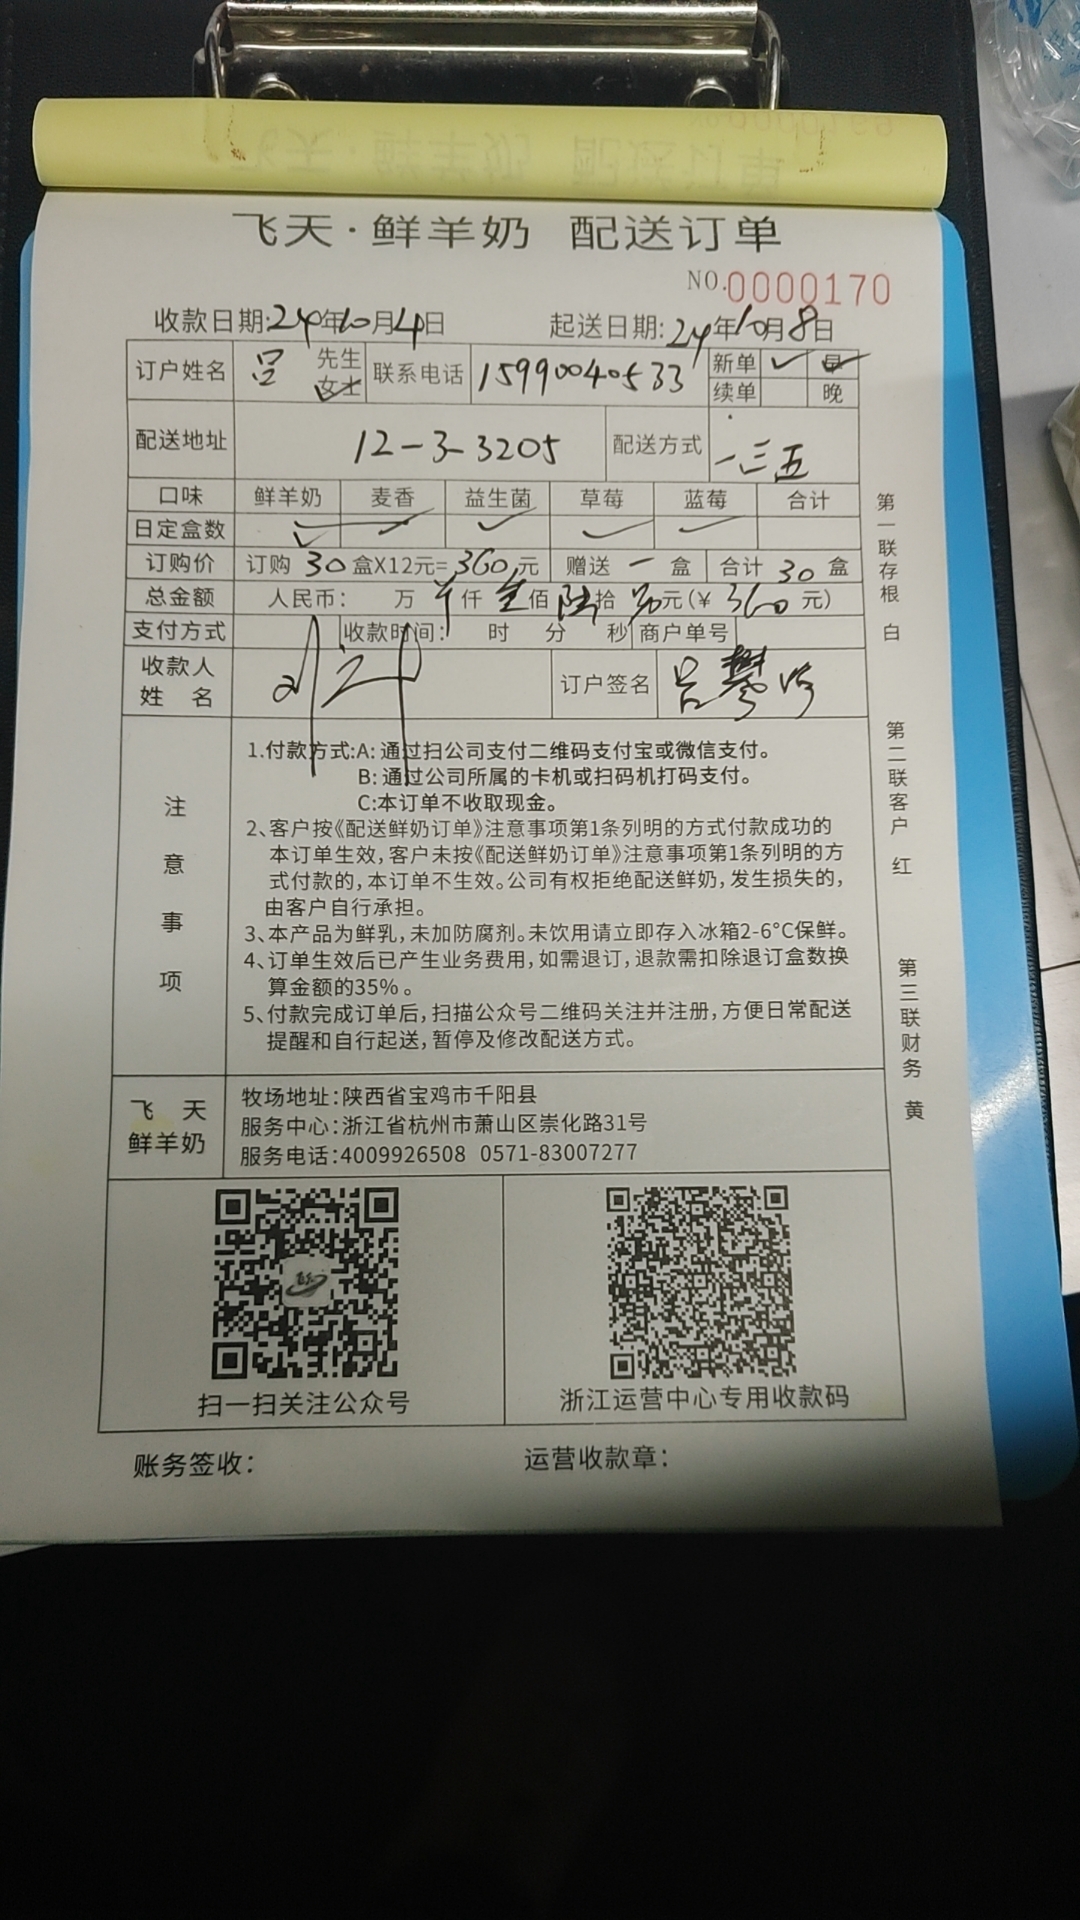 飞天·鲜羊奶 配送订单
NO.0000170
收款日期:24年10月4日 起送日期:24年10月8日
订户姓名 吕 先生 女士 联系电话 15990040533 新单 ✓ 早
续单 晚
配送地址 12-3-3205 配送方式 一三五
口味 鲜羊奶 麦香 益生菌 草莓 蓝莓 合计
日定盒数 ✓ ✓ ✓ ✓ ✓
订购价 订购 30 盒X12元=360元 赠送 一 盒 合计 30 盒
总金额 人民币: 万 仟 叁佰 陆拾 元(¥ 360 元)
支付方式 收款时间: 时 分 秒 商户单号
收款人
姓 名 订户签名 吕
注意事项
1.付款方式:A:通过扫公司支付二维码支付宝或微信支付。
B:通过公司所属的卡机或扫码机打码支付。
C:本订单不收取现金。
2、客户按《配送鲜奶订单》注意事项第1条列明的方式付款成功的
本订单生效,客户未按《配送鲜奶订单》注意事项第1条列明的方
式付款的,本订单不生效。公司有权拒绝配送鲜奶,发生损失的,
由客户自行承担。
3、本产品为鲜乳,未加防腐剂。未饮用请立即存入冰箱2-6°C保鲜。
4、订单生效后已产生业务费用,如需退订,退款需扣除退订盒数换
算金额的35%。
5、付款完成订单后,扫描公众号二维码关注并注册,方便日常配送
提醒和自行起送,暂停及修改配送方式。
飞 天
鲜羊奶
牧场地址:陕西省宝鸡市千阳县
服务中心:浙江省杭州市萧山区崇化路31号
服务电话:4009926508 0571-83007277
扫一扫关注公众号 浙江运营中心专用收款码
账务签收: 运营收款章:
第一联存根 白
第二联客户 红
第三联财务 黄